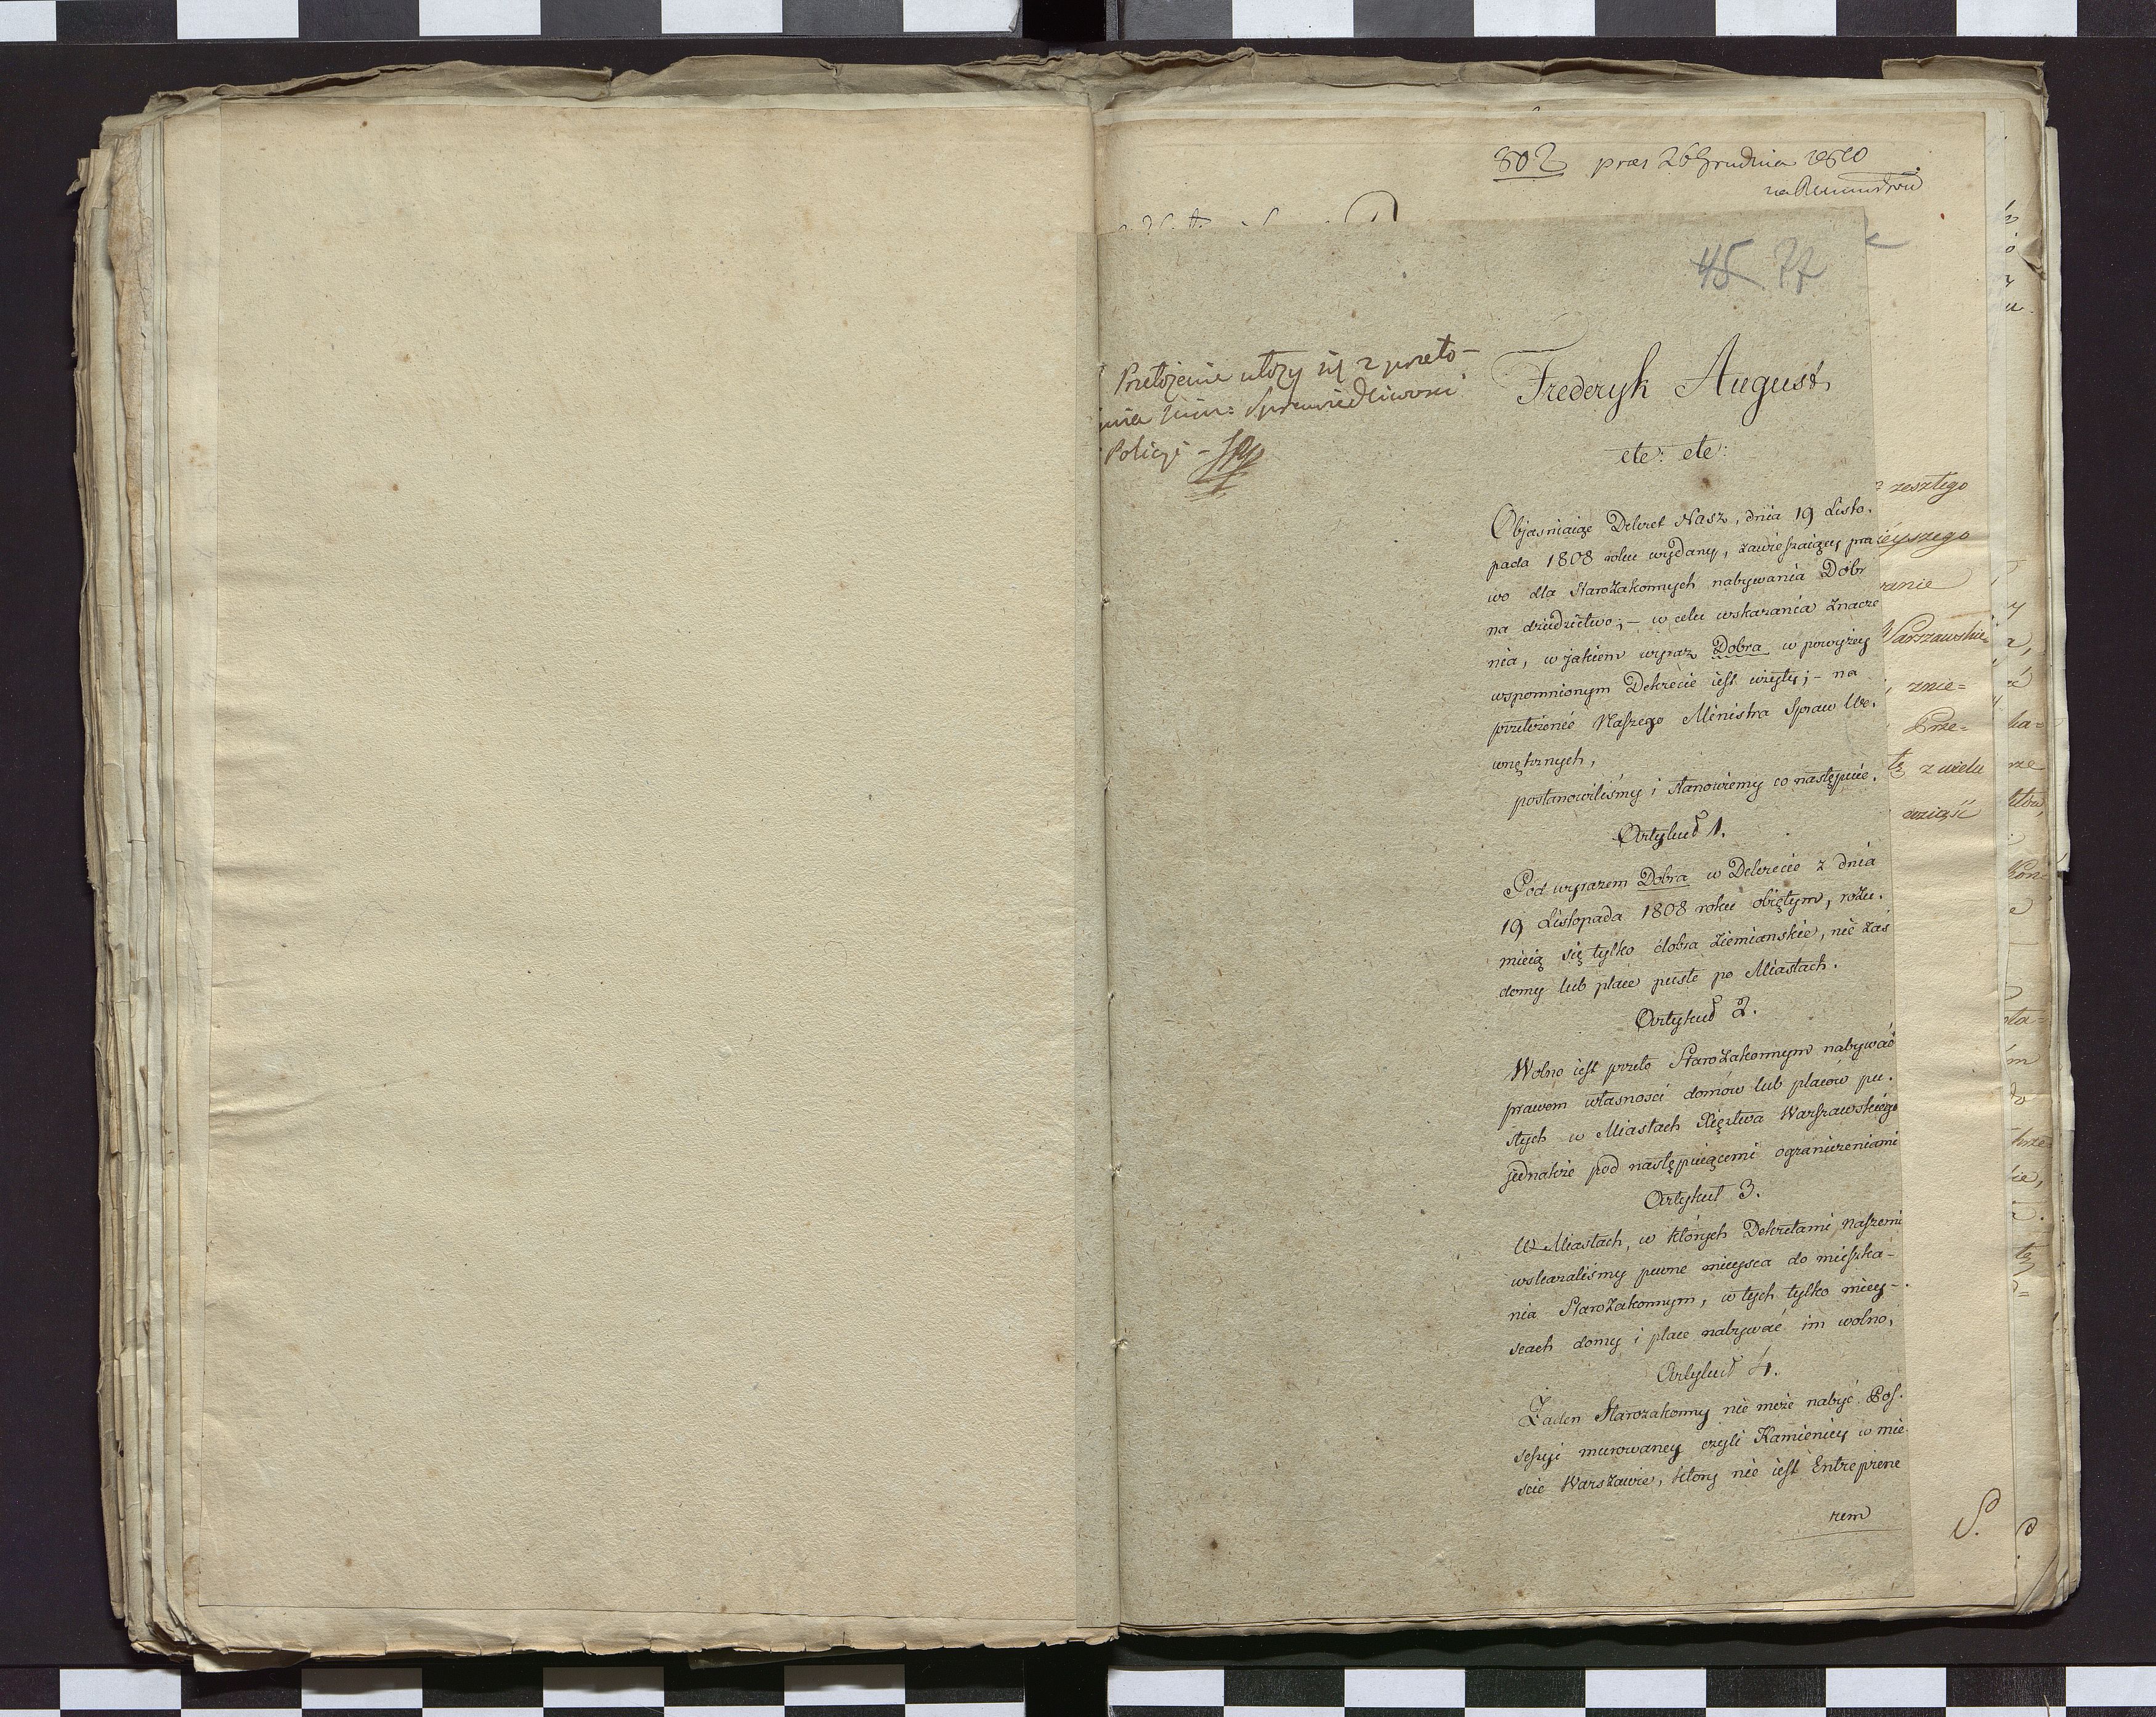 802 præs 26 Grudnia 1810
45 77
Przełożenie ułoży się z przeło-
Minr: Sprawiedliwości
Policji -
Frederyk August,
etc: etc:
Objasniaiąc Dekret Nasz, dnia 19 Listo-
pada 1808 roku wydany, zawieszaiący pra
wo dla Starozakonnych nabywania Dóbr
na dziedzictwo; – w celu wskazania znacze
nia, w jakiem wyraz Dobra w powyżey
wspomnionym Dekrecie iest wzięty; – na
przełożenie Naszego Ministra Spraw We-
wnętrznych,
postanowiliśmy i stanowiemy co następuie.
Artykuł 1.
Pod wyrazem Dobra w Dekrecie z dnia
19 Listopada 1808 roku obiętym, rozu-
mieią się tylko dobra Ziemianskie, nie zaś
domy lub place puste po Miastach.
Artykuł 2.
Wolno iest przeto Starozakonnym nabywać
prawem własnosci domów lub placow pu-
stych w Miastach Xięztwa Warszawskiego
jednakże pod następuiącemi ograniczeniami
Artykuł 3.
W Miastach, w których Dekretami Naszemi
wskazaliśmy pewne mieysca do mieszka-
nia Starozakonnym, w tych tylko miey-
scach domy i place nabywać im wolno,
Artykuł 4.
Żaden Starozakonny nie może nabyć Pos-
sessyi murowaney czyli Kamienicy w mie
scie Warszawie, ktory nie iest Entreprene
rem
zesztego
ieyszego
wanie
Warszawskie
znie=
Prze=
tę z wielu
cziąść
S.